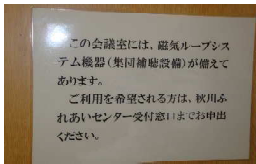 この会議室には、磁気ループシス
テム機器(集団補聴設備)が備えて
あります。
ご利用を希望される方は、秋川ふ
れあいセンター受付窓口までお申出
ください。